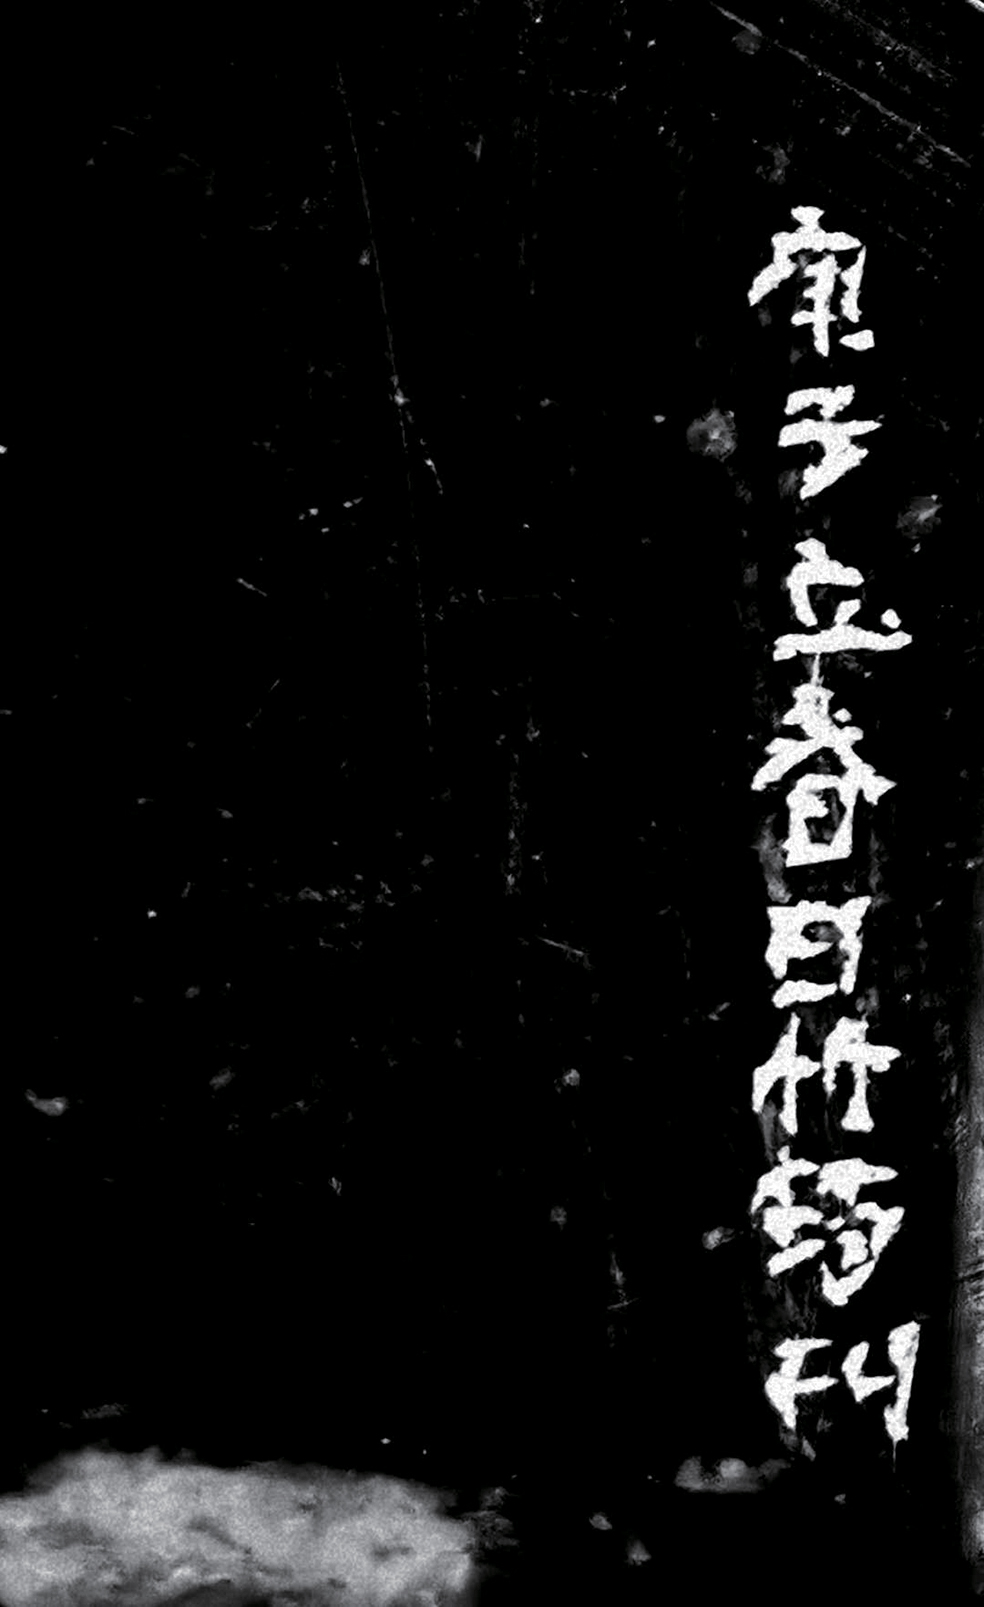 庚子立春日竹筠刊